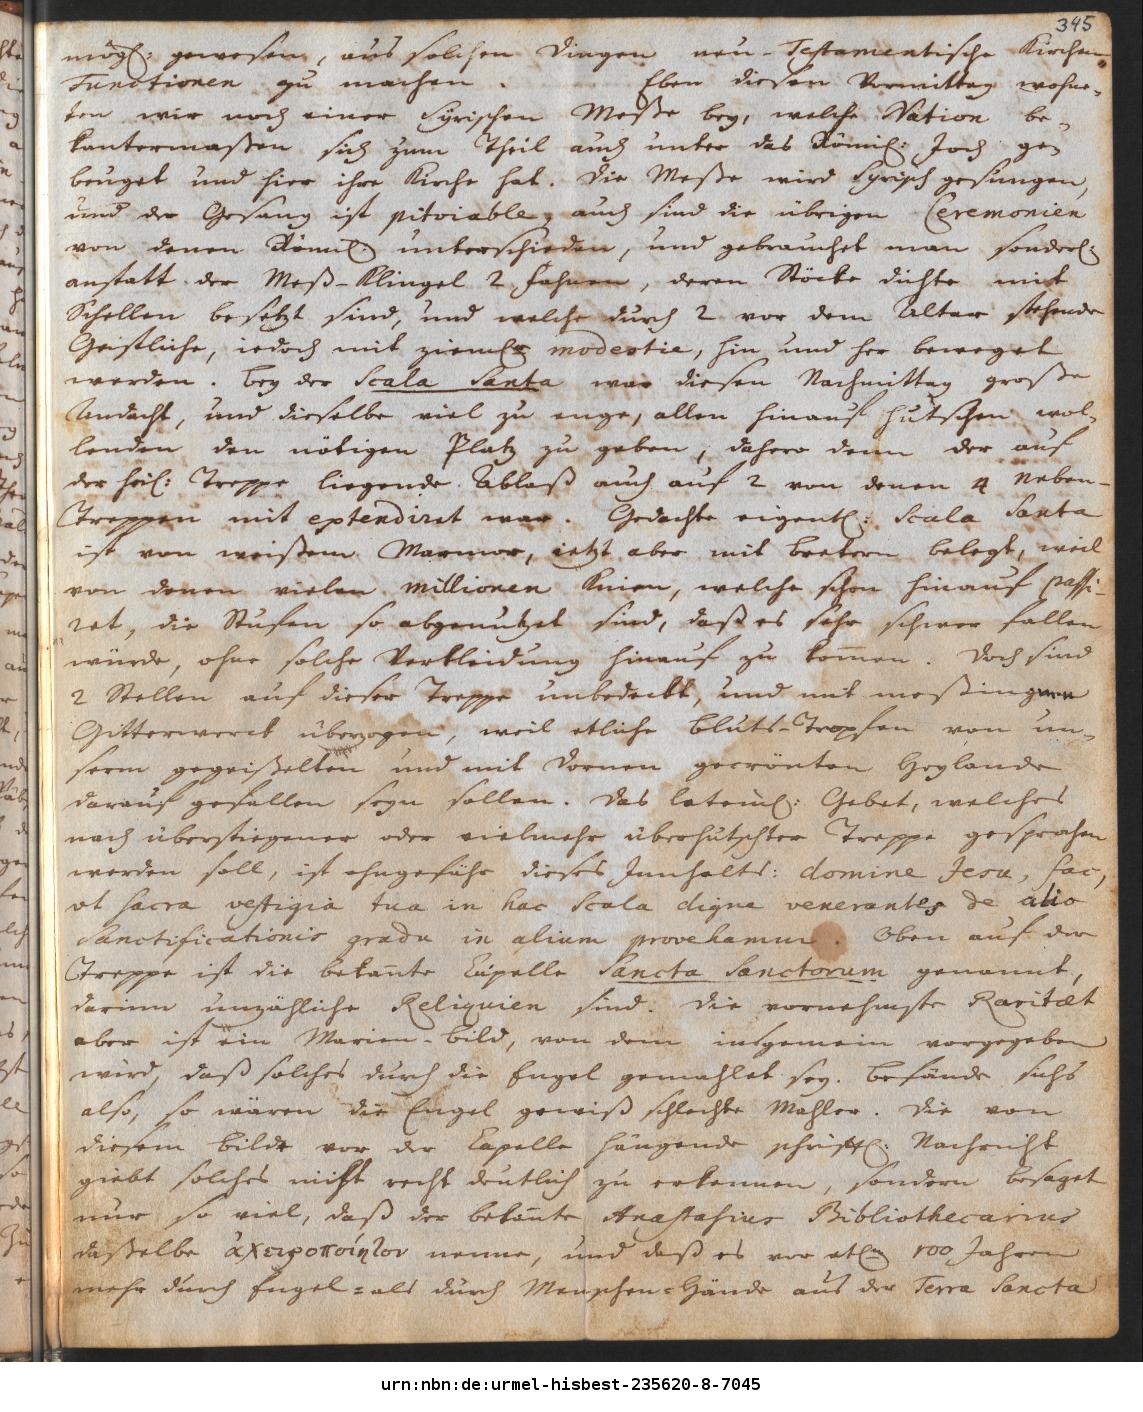 345
mögl: gewesen, aus solchen Dingen neu-Testamentische Kirchen-
Functionen zu machen. Eben diesen Vormittag wohne-
ten wir noch einer Syrischen Meße bey, welche Nation be-
kantermaßen sich zum Theil auch unter das Römis: Joch ge-
beuget und hier ihre Kirche hat. Die Meße wird Syrisch gesungen,
und der Gesang ist pitoiable, auch sind die übrigen Ceremonien
von denen Römis: unterschieden, und gebrauchet man sonderl:
anstatt der Meß-Klingel 2 Fahnen, deren Stöcke dichte mit
Schellen besetzt sind, und welche durch 2 vor dem Altar stehende
Geistliche, iedoch mit zieml: modestie, hin und her beweget
werden. Bey der Scala Santa war diesen Nachmittag große
Andacht, und dieselbe viel zu enge, allen hinauf hutschen wol-
lenden den nötigen Platz zu geben, dahero denn der auf
der heil: Treppe liegende Ablaß auch auf 2 von denen 4 Neben-
Treppen mit extendiret war. Gedachte eigentl: Scala Santa
ist von weißem Marmor, ietzt aber mit Bretern belegt, weil
von denen vielen millionen Knien, welche schon hinauf passi-
ret, die Stufen so abgenutzet sind, daß es sehr schwer fallen
würde, ohne solche Verkleidung hinauf zu kom̄en. Doch sind
2 Stellen auf dieser Treppe unbedeckt, und mit meßingnen
Gitterwerck überzogen, weil etliche Bluts-Tropfen von un-
serm gegeißelten und mit Dornen gecrönten Heylande
darauf gefallen seyn sollen. Das lateinis: Gebet, welches
nach überstiegener oder vielmehr überhutschter Treppe gesprochen
werden soll, ist ohngefähr dieses Innhalts: domine Jesu, fac,
ut sacra vestigia tua in hac Scala digne venerantes de alio
Sanctificationis gradu in alium provehamur. Oben auf der
Treppe ist die bekan̄te Capelle Sancta Sanctorum genannt,
darinn unzähliche Reliquien sind. Die vornehmste Raritæt
aber ist ein Marien-Bild, von dem insgemein vorgegeben
wird, daß solches durch die Engel gemahlet sey. Befände sichs
also, so wären die Engel gewiß schlechte Mahler. Die von
diesem Bilde vor der Capelle hängende schriftl: Nachricht
giebt solches nicht recht deutlich zu erkennen, sondern besaget
nur so viel, daß der bekan̄te Anastasius Bibliothecarius
daßelbe ἀχειροποίητον nenne, und daß es vor etl: 100 Jahren
mehr durch Engel= als durch Menschen=Hände aus der Terra Sancta
urn:nbn:de:urmel-hisbest-235620-8-7045